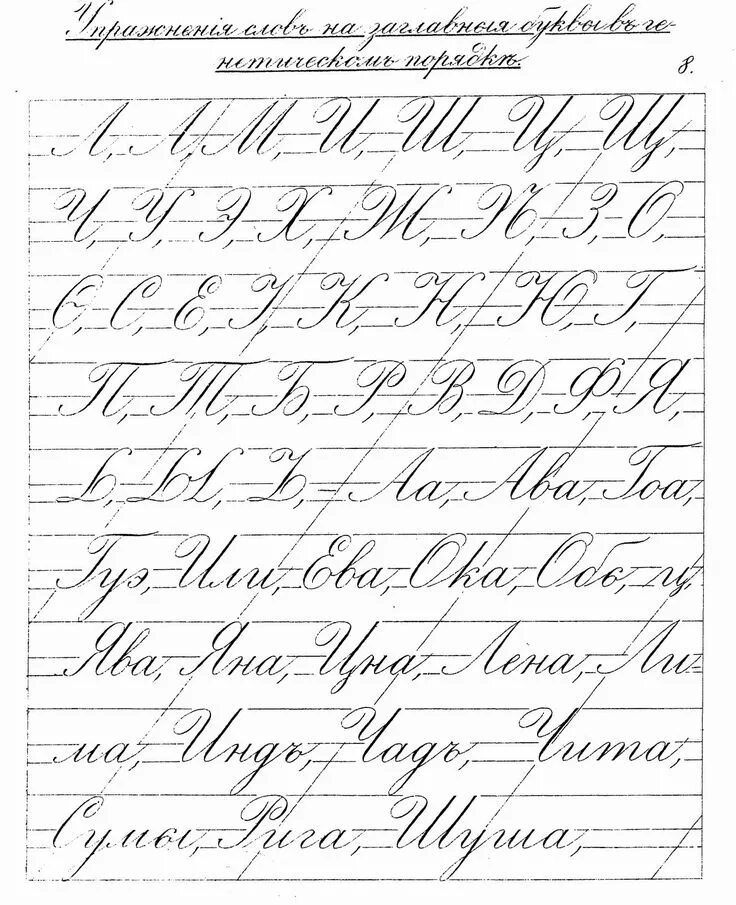 Упражненія словъ на заглавныя буквы въ ге-
нетическомъ порядкѣ.
8.
Л, А, М, И, Ш, Ц, Щ,
Ч, У, Э, Х, Ж, Ѣ, З, О,
Ѳ, С, Е, І, К, Н, Ю, Г,
П, Т, Б, Р, В, Д, Ф, Я,
Ь, Ы, Ъ, = Аа, Ава, Гоа,
Гуэ, Или, Ева, Ока, Обь,
Ява, Яна, Цна, Лена, Ли=
ма, Индъ, Чадъ, Чита,
Сумы, Рига, Шуша,